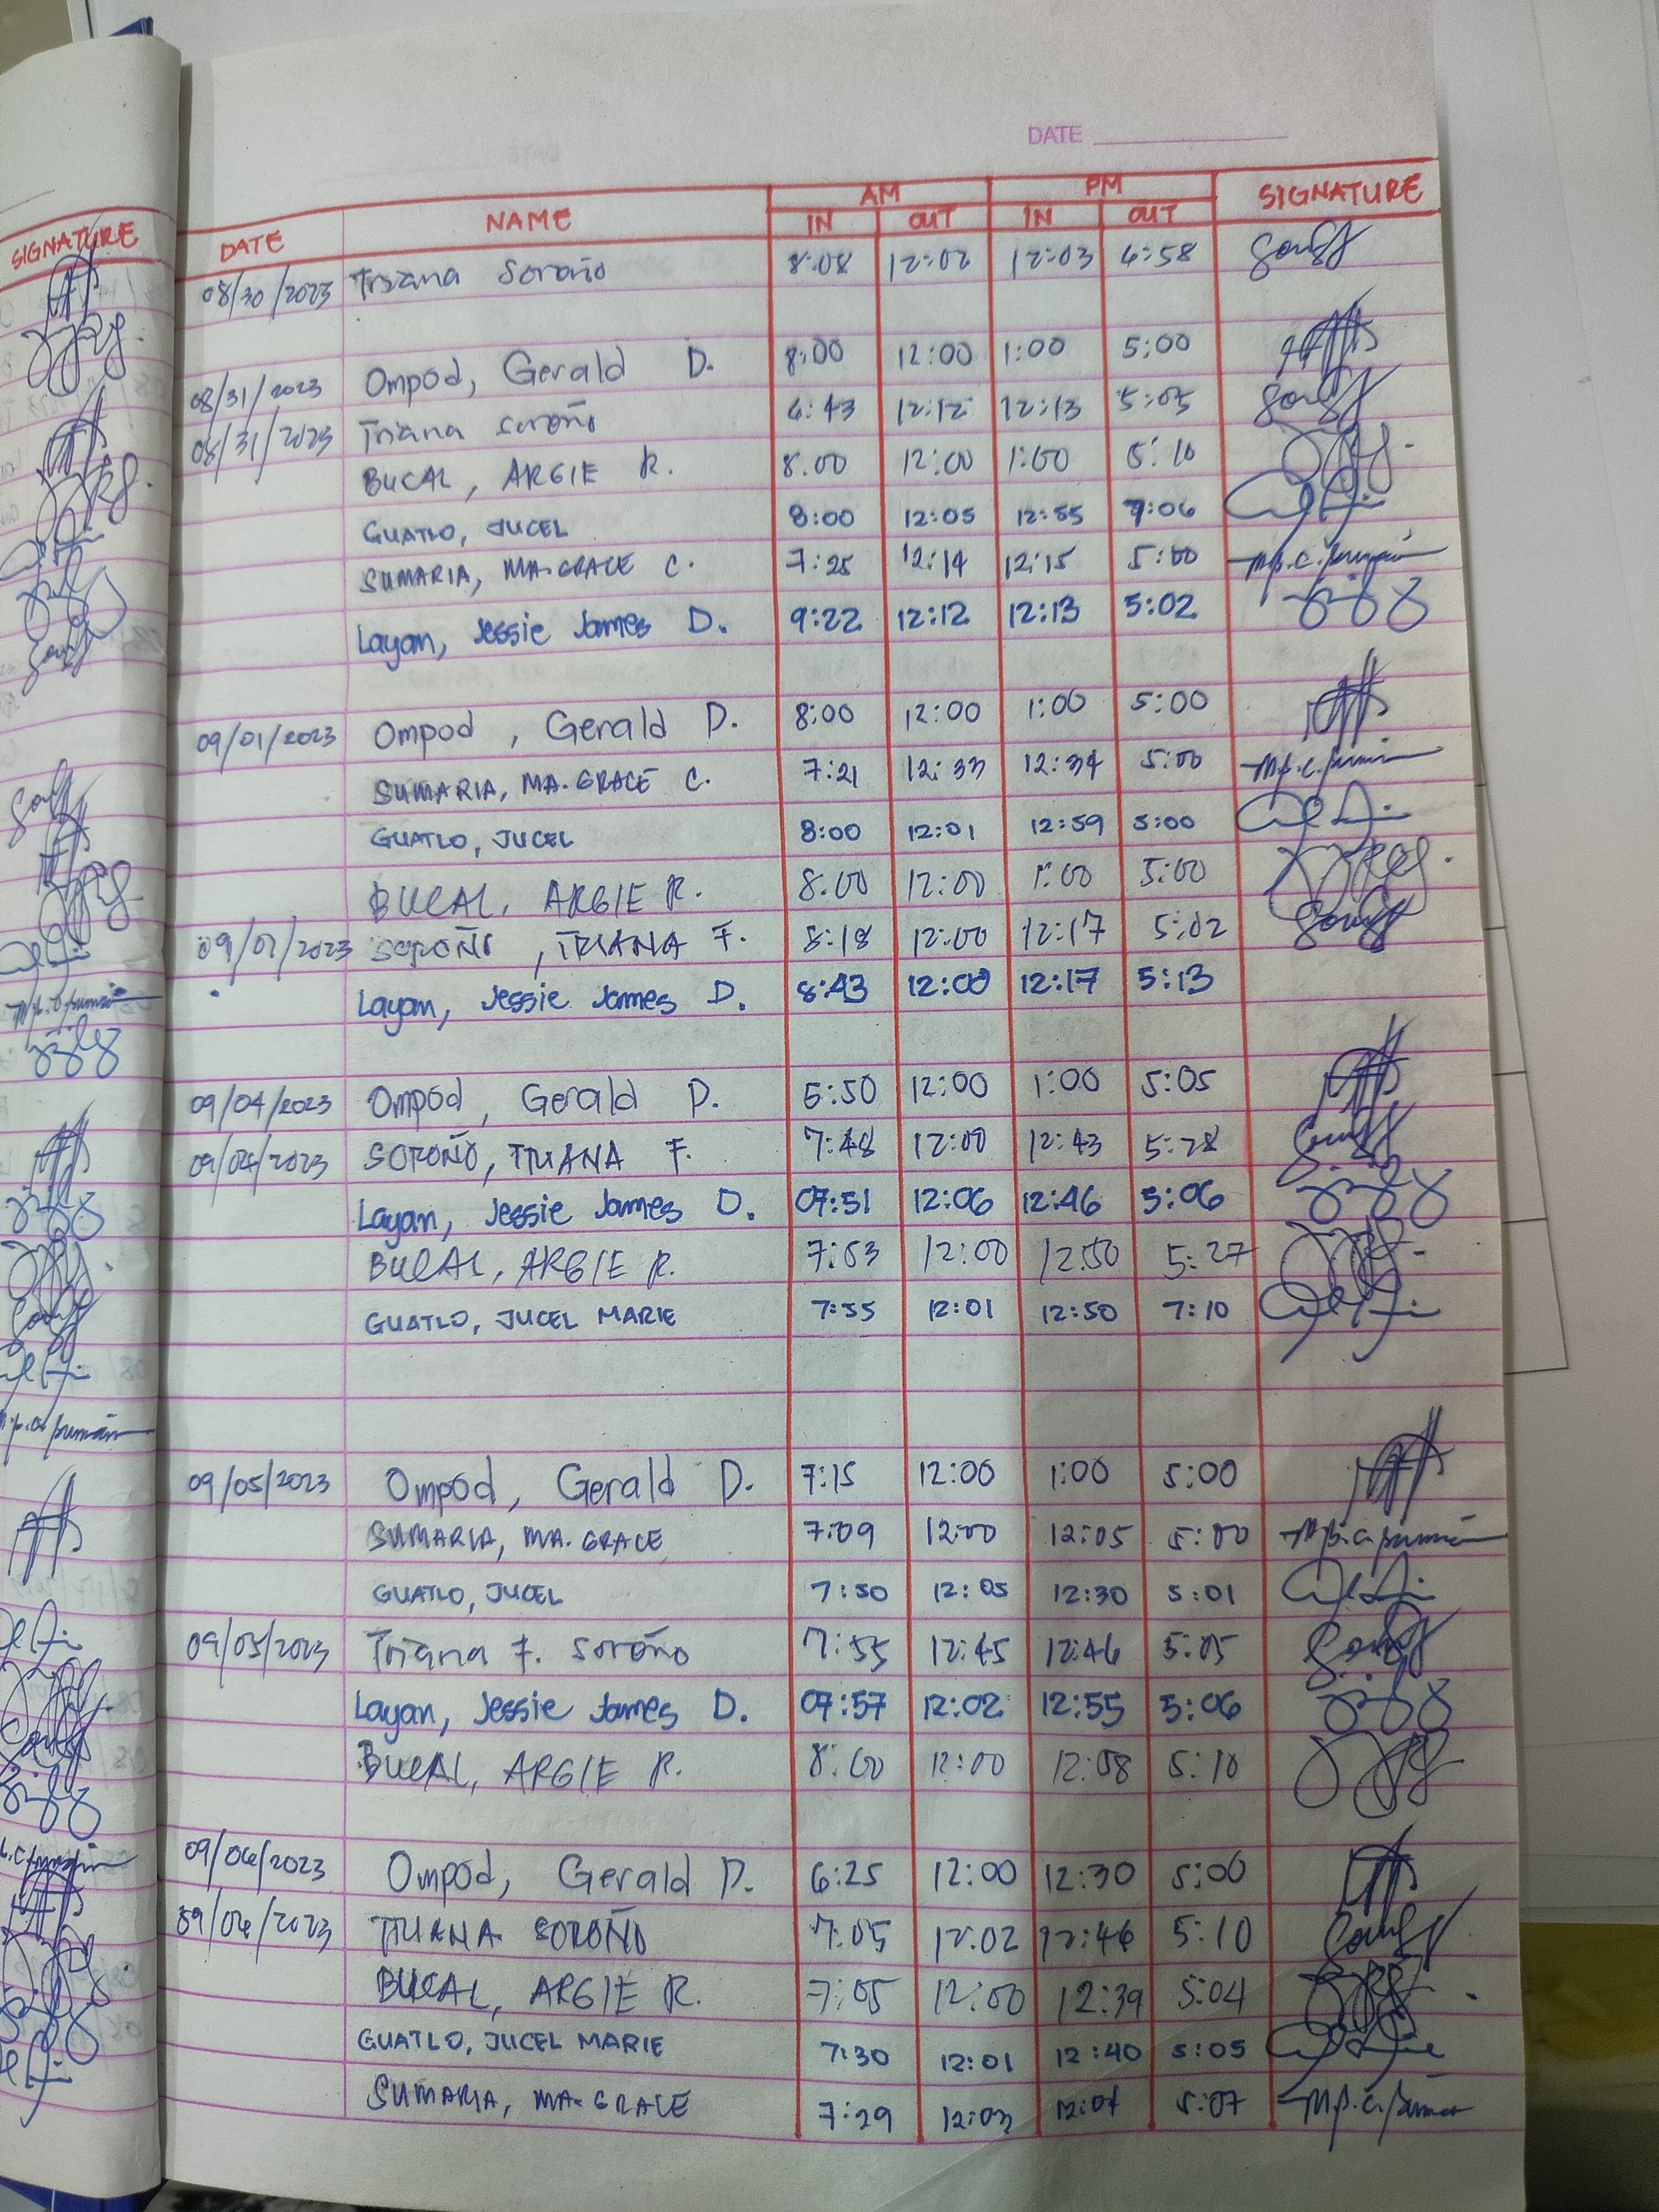 DATE
SIGNATURE
DATE NAME AM IN OUT PM IN OUT SIGNATURE
08/30/2023 Triana Soroño 8:08 12:02 12:03 4:58
08/31/2023 Ompod, Gerald D. 8:00 12:00 1:00 5:00
08/31/2023 Triana Soroño 6:43 12:12 12:13 5:05
BUCAL, ARGIE R. 8:00 12:00 1:00 5:10
GUATLO, JUCEL 8:00 12:05 12:55 7:06
SUMARIA, MA. GRACE C. 7:25 12:14 12:15 5:00
Layan, Jessie James D. 9:22 12:12 12:13 5:02
09/01/2023 Ompod, Gerald D. 8:00 12:00 1:00 5:00
SUMARIA, MA. GRACE C. 7:21 12:33 12:34 5:00
GUATLO, JUCEL 8:00 12:01 12:59 5:00
BUCAL, ARGIE R. 8:00 12:00 1:00 5:00
SOROÑO, TRIANA F. 8:18 12:00 12:17 5:02
Layan, Jessie James D. 8:43 12:00 12:17 5:13
09/04/2023 Ompod, Gerald D. 12:00 1:00 5:05
09/04/2023 SOROÑO, TRIANA F. 7:48 12:00 12:43 5:28
Layan, Jessie James D. 07:51 12:06 12:46 5:06
BUCAL, ARGIE R. 7:53 12:00 12:50 5:27
GUATLO, JUCEL MARIE 7:55 12:01 12:50 7:10
09/05/2023 Ompod, Gerald D. 7:15 12:00 1:00 5:00
SUMARIA, MA. GRACE 7:09 12:00 12:05 5:00
GUATLO, JUCEL 7:50 12:05 12:30 5:01
09/05/2023 Triana F. Soroño 7:55 12:45 12:46 5:05
Layan, Jessie James D. 07:57 12:02 12:55 5:06
BUCAL, ARGIE R. 8:00 12:00 12:58 5:10
09/06/2023 Ompod, Gerald D. 6:25 12:00 12:30 5:00
09/06/2023 TRIANA SOROÑO 7:05 12:02 12:46 5:10
BUCAL, ARGIE R. 7:05 12:00 12:39 5:04
GUATLO, JUCEL MARIE 7:30 12:01 12:40 5:05
SUMARIA, MA. GRACE 7:29 12:03 12:04 5:07